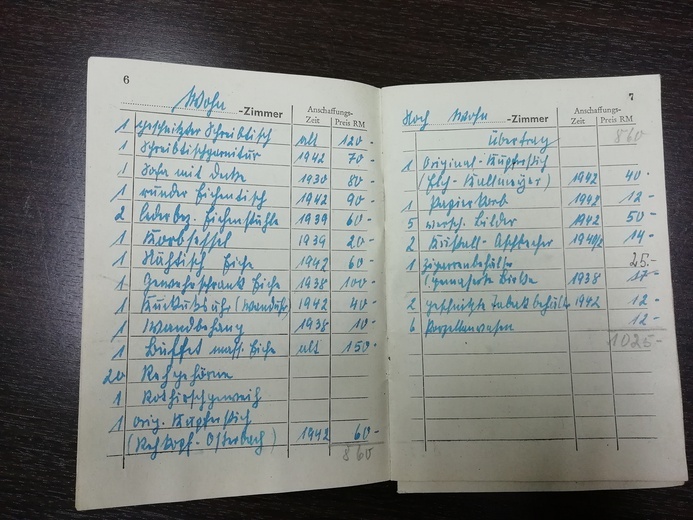 6
Wohn -Zimmer
Anschaffungs-
Zeit Preis RM
1 geschnitzter Schreibtisch alt 120.-
1 Schreibtischgarnitur 1942 70.-
1 Sofa mit Decke 1930 80.-
1 runder Eichentisch 1942 90.-
2 lederbez. Eichenstühle 1939 60.-
1 Korbsessel 1939 20.-
1 Nähtisch Eiche 1942 60.-
1 Gewehrschrank Eiche 1938 100.-
1 Kuckucksuhr (Wanduhr) 1942 40.-
1 Wandbehang 1938 10.-
1 Buffet mass. Eiche alt 150.-
20 Rehgehörne
1 Rothirschgeweih
1 orig. Kupferstich
(Rehkopf- Osterbach) 1942 60.-
860
7
Noch Wohn -Zimmer
Anschaffungs-
Zeit Preis RM
Übertrag 860
1 Original-Kupferstich
(Elch- Kallmeyer) 1942 40.-
1 Papierkorb 1942 12.-
5 versch. Bilder 1942 50.-
2 Kristall- Aschbecher 14.-
25.-
1 Zigarrenbehälter
1938
2 geschnitzte Tabakbehält. 1942 12.-
6 Porzellanvasen 12.-
1025.-